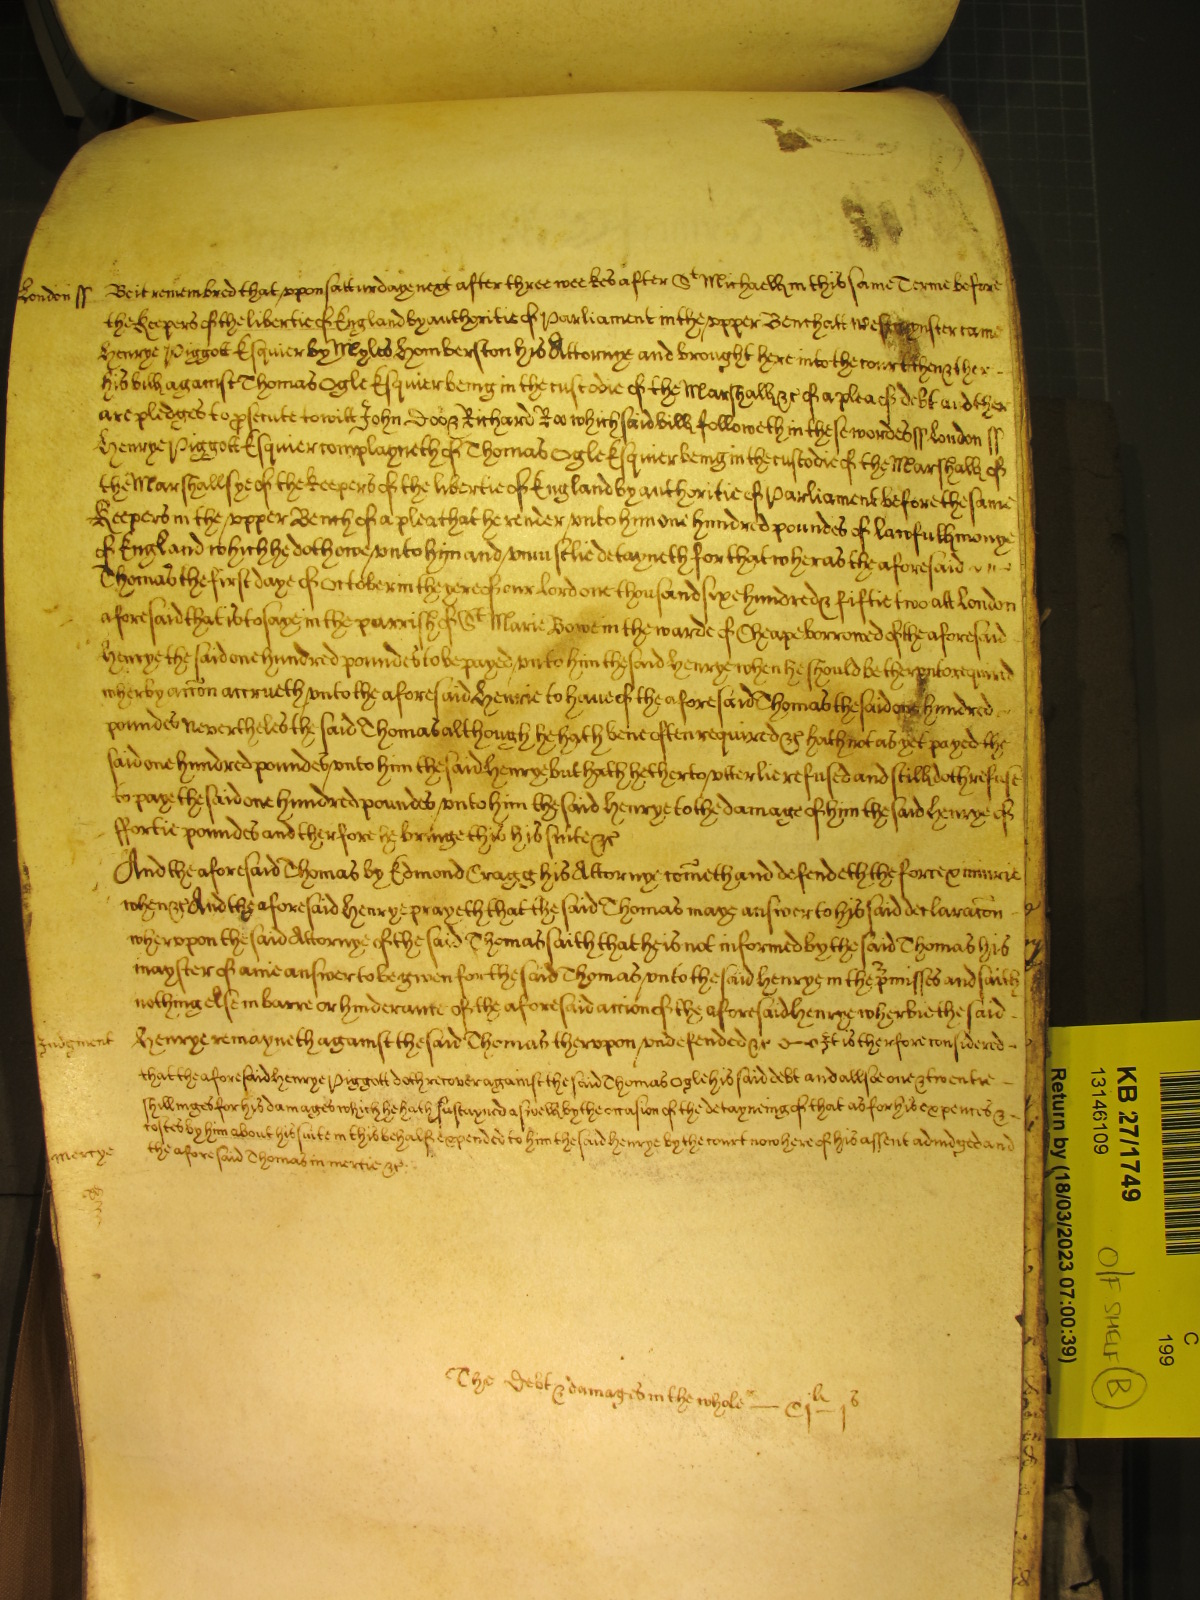 London ss Be it remembred that upon Satturday next after three weekes after St Michaell in this same Terme before
the Keepers of the libertie of England by authoritie of Parliament in the upper Bench att Westmynster came
Henrye Piggott Esquier by Myles Homberston his Attornye and brought here into the court then & ther
his bill against Thomas Ogle Esquier being in the custodie of the Marshall &c of a plea of debt and ther
are pledges to prosecute to witt John Doo & Richard Roo which said bill followeth in these wordes ss London ss
Henrye Piggott Esquier complayneth of Thomas Ogle Esquier being in the custodie of the Marshall of
the Marshallsye of the Keepers of the libertie of England by authoritie of Parliament before the same
Keepers in the upper Bench of a plea that he render unto him one hundred poundes of lawfull monye
of England which he doth owe unto hym and uniustlie detayneth for that wheras the aforesaid
Thomas the first daye of October in the yere of our Lord one thousand sixe hundred & fiftie two att London
aforesaid that is to saye in the parrish of St Marie Bowe in the warde of Cheape borrowed of the aforesaid
Henrye the said one hundred poundes to be payed unto him the said Henrye when he should be therunto required
wherby accon accrueth unto the aforesaid Henrie to have of the aforesaid Thomas the said one hundred
poundes Nevertheles the said Thomas although he hath bene often required &c hath not as yet payed the
said one hundred poundes unto him the said Henrye but hath hetherto utterlie refused and still doth refuse
to paye the said one hundred poundes unto him the said Henrye to the damage of him the said Henrye of
ffortie poundes and therfore he bringe this his suite &c
And the aforesaid Thomas by Edmond Cragg his Attornye cometh and defendeth the force & iniurie
when &c And the aforesaid Henrye prayeth that the said Thomas maye answer to his said declaracon
wherupon the said Attornye of the said Thomas saith that he is not informed by the said Thomas his
mayster of anie answer to be given for the said Thomas unto the said Henrye in the pmisses and saith
nothing else in barre or hinderance of the aforesaid accion of the aforesaid Henrye wherbie the said
Judgment Henrye remayneth against the said Thomas therupon undefended &c It is therfore considered
that the aforesaid Henrye Piggott doth recover against the said Thomas Ogle his said debt and allsoe one & twentie
shillinges for his damages which he hath sustayned aswell by the occasion of the detayneing of that as for his expences &
costes by him about his suite in this behalfe expended to him the said Henrye by the court now here of his assent adiudged and
Mercye the aforesaid Thomas in mercie &c
The Debt & damages in the whole — Cjli js
KB 27/1749
13146109
Return by (18/03/2023 07:00:39)
C
199
O/F SHELF B